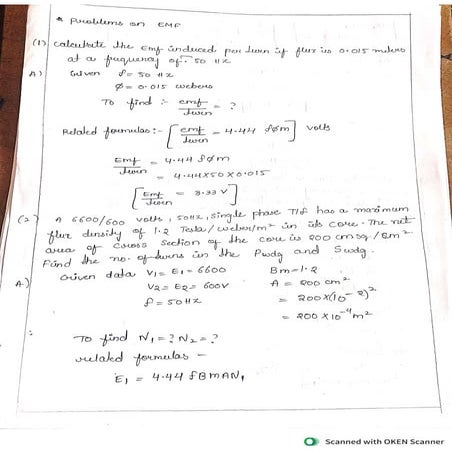 * Problems on EMF
(1) calculate the Emf induced per turn if flux is 0.015 webers
at a frequency of 50 Hz
A.) Given f = 50 Hz
Ø = 0.015 webers
To find :- emf/turn = ?
Related formulas:- [emf/turn = 4.44 fØm] volts
Emf/turn = 4.44 fØm
= 4.44x50x0.015
[Emf/turn = 3.33 V]
(2) A 6600/600 volts, 50Hz, single phase T/f has a maximum
flux density of 1.2 Tesla/weber/m² in its core. The net
area of cross section of the core is 200 cm sq/cm²
Find the no. of turns in the Pwdg and Swdg.
A.) Given data V1 = E1 = 6600 Bm = 1.2
V2 = E2 = 600V A = 200 cm²
f = 50Hz = 200x(10⁻²)²
= 200x10⁻⁴m²
To find N1 = ? N2 = ?
related formulas -
E1 = 4.44 fBmAN1
Scanned with OKEN Scanner